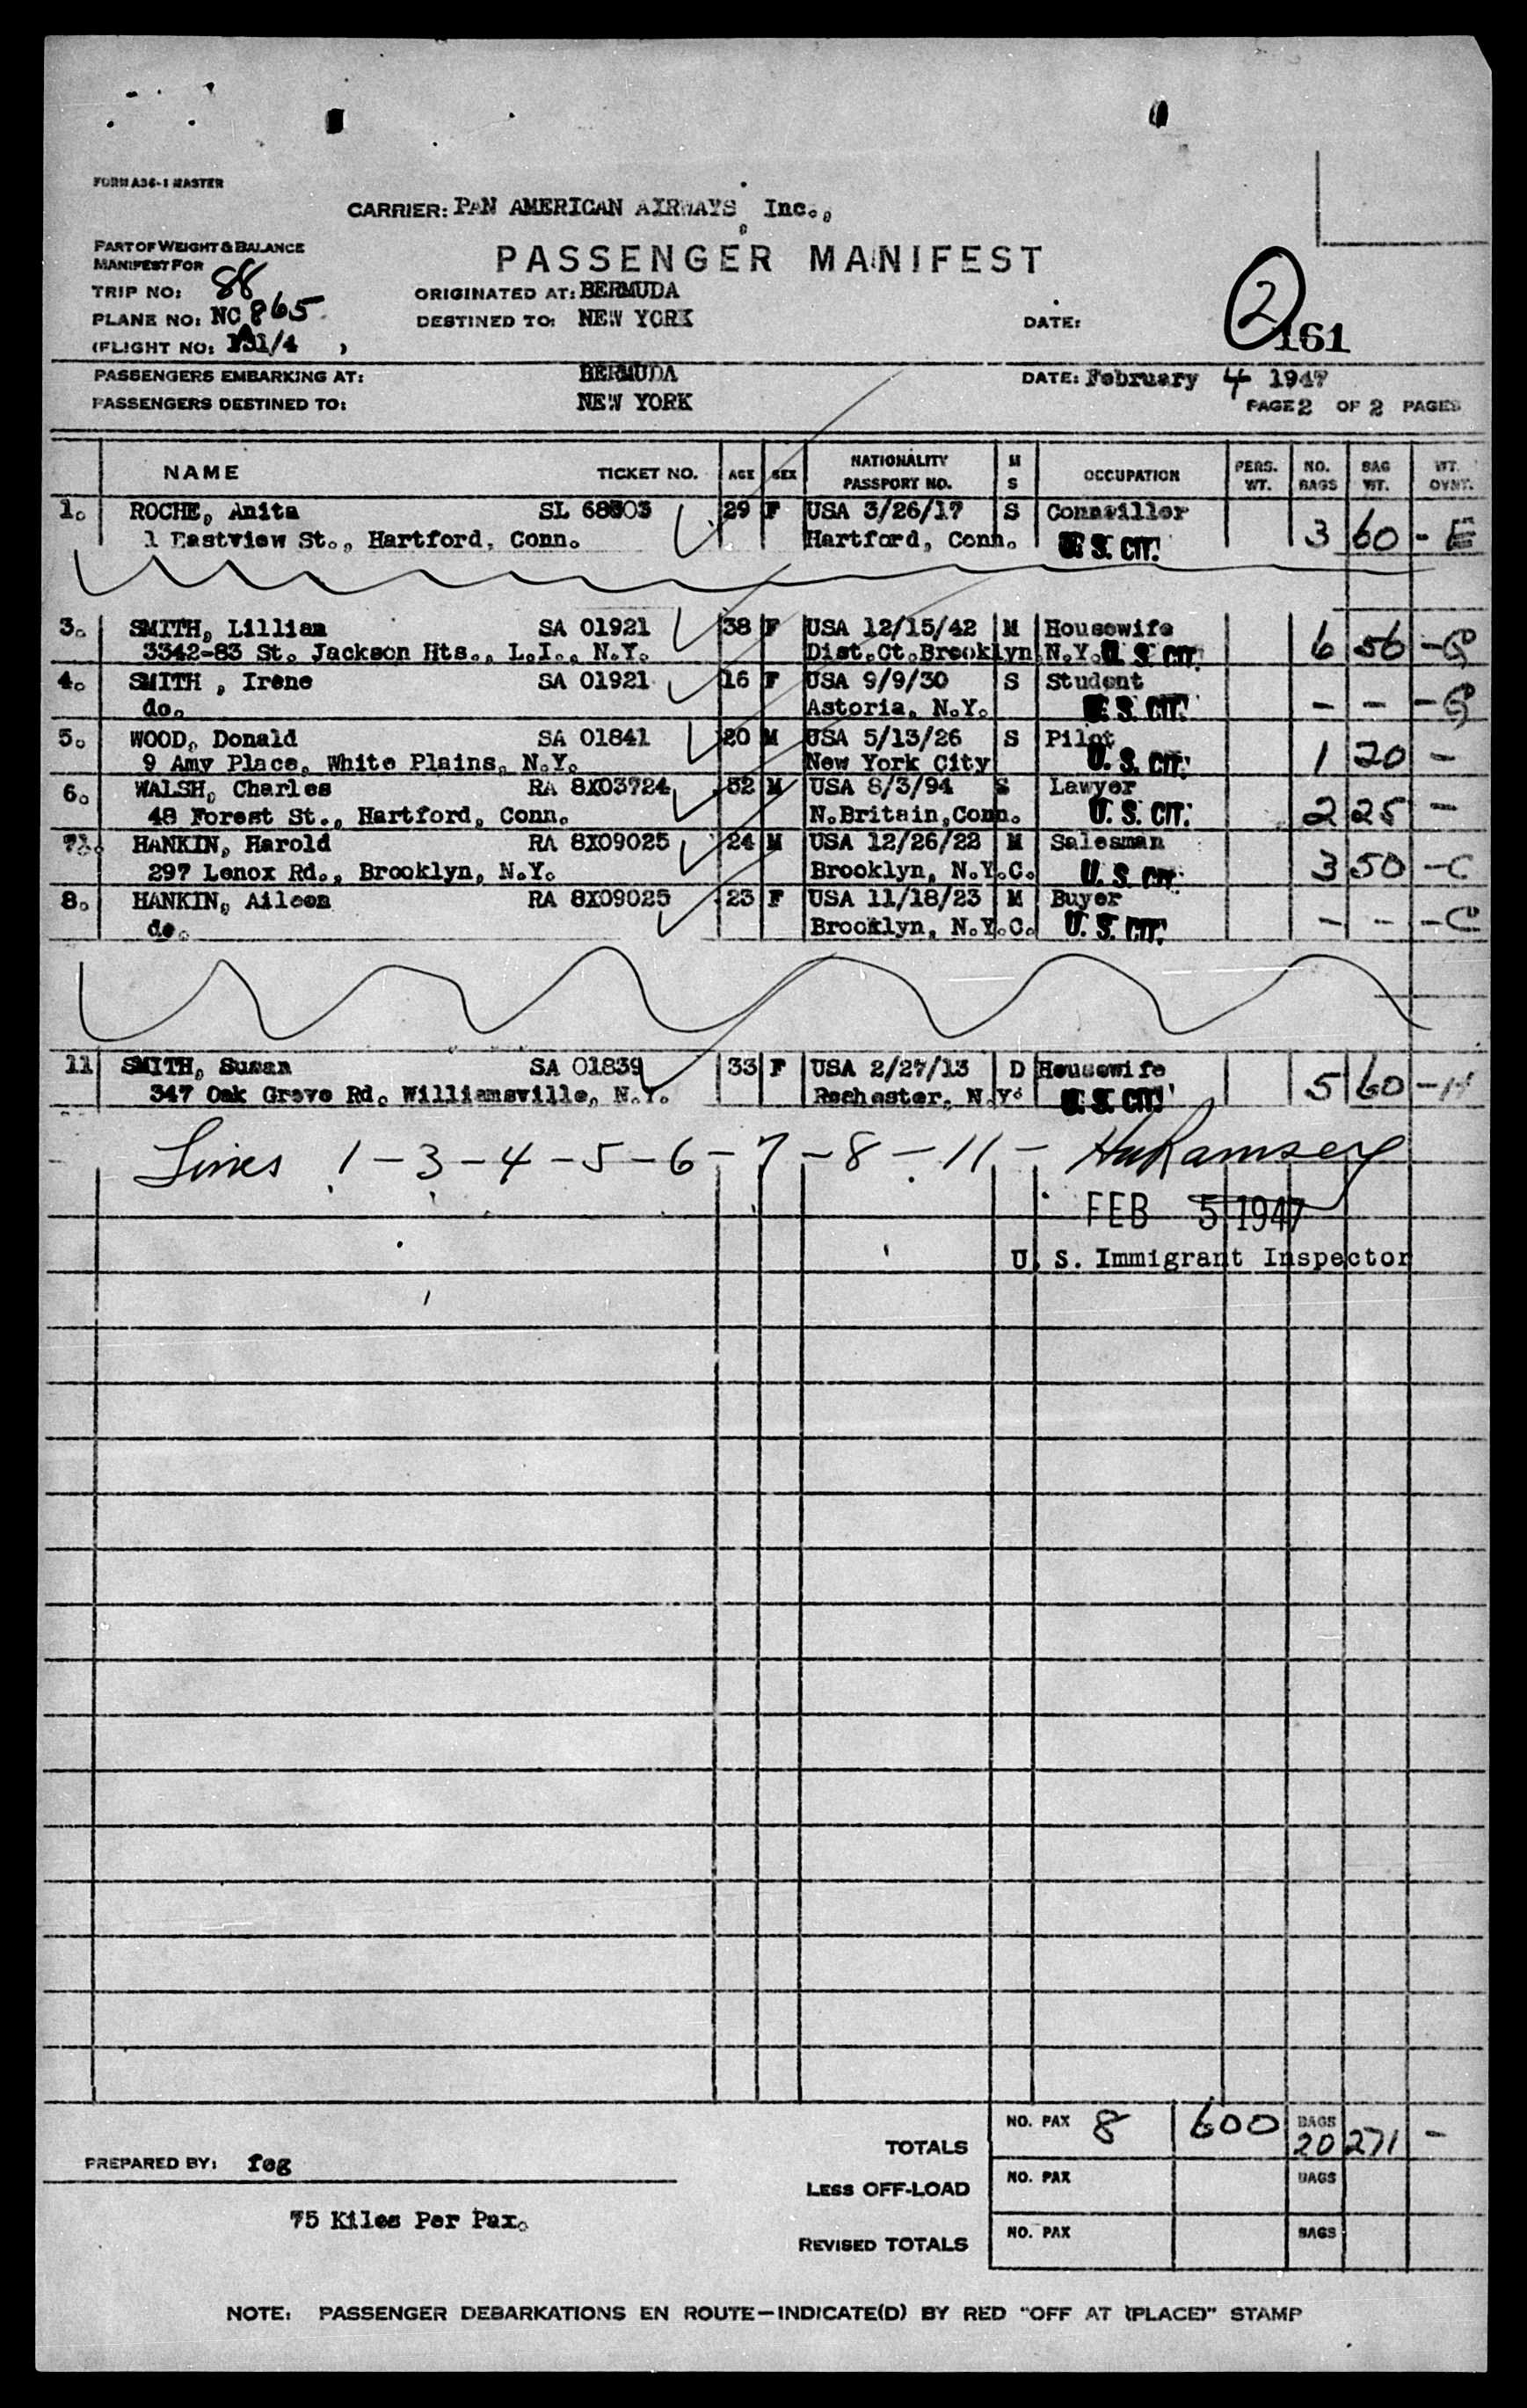 FORM A36-1 MASTER
CARRIER: PAN AMERICAN AIRWAYS, Inc.,
PART OF WEIGHT & BALANCE
MANIFEST FOR
PASSENGER MANIFEST
TRIP NO: 88
ORIGINATED AT: BERMUDA
PLANE NO: NC 865
DESTINED TO: NEW YORK
DATE:
2
161
(FLIGHT NO: 131/4 )
PASSENGERS EMBARKING AT: BERMUDA DATE: February 4 1947
PASSENGERS DESTINED TO: NEW YORK PAGE 2 OF 2 PAGES
NAME TICKET NO. AGE SEX NATIONALITY PASSPORT NO. M S OCCUPATION PERS. WT. NO. BAGS BAG WT. WT. OVWT.
1. ROCHE, Anita SL 29 F USA 3/26/17 S
1 Eastview St., Hartford, Conn. Hartford, Conn. U. S. CIT. 3 60 - E
3. SMITH, Lillian SA 01921 38 F USA 12/15/42 M Housewife
3342-83 St. Jackson Hts., L.I., N.Y. Dist.Ct.Brooklyn,N.Y. U. S. CIT. 6 56 - G
4. SMITH , Irene SA 01921 16 F USA 9/9/30 S Student
do. Astoria, N.Y. U. S. CIT. - - - G
5. WOOD, Donald SA 01841 20 M USA 5/13/26 S Pilot
9 Amy Place, White Plains, N.Y. New York City U. S. CIT. 1 20 -
6. WALSH, Charles RA 8X03724 52 M USA 8/3/94 S Lawyer
48 Forest St., Hartford, Conn. N.Britain,Conn. U. S. CIT. 2 25 -
7. HANKIN, Harold RA 8X09025 24 M USA 12/26/22 M Salesman
297 Lenox Rd., Brooklyn, N.Y. Brooklyn, N.Y.C. U. S. CIT. 3 50 - C
8. HANKIN, Aileen RA 8X09025 23 F USA 11/18/23 M Buyer
do. Brooklyn, N.Y.C. U. S. CIT. - - - C
11 SMITH, Susan SA 01839 33 F USA 2/27/13 D Housewife
347 Oak Grove Rd. Williamsville, N.Y. Rochester, N.Y. U. S. CIT. 5 60 - H
Lines 1 - 3 - 4 - 5 - 6 - 7 - 8 - 11 - Ramsey
FEB 5 1947
U. S. Immigrant Inspector
TOTALS NO. PAX 8 600 BAGS 20 271 -
PREPARED BY: feg
LESS OFF-LOAD NO. PAX BAGS
75 Kilos Per Pax.
REVISED TOTALS NO. PAX BAGS
NOTE: PASSENGER DEBARKATIONS EN ROUTE—INDICATE(D) BY RED "OFF AT (PLACE)" STAMP